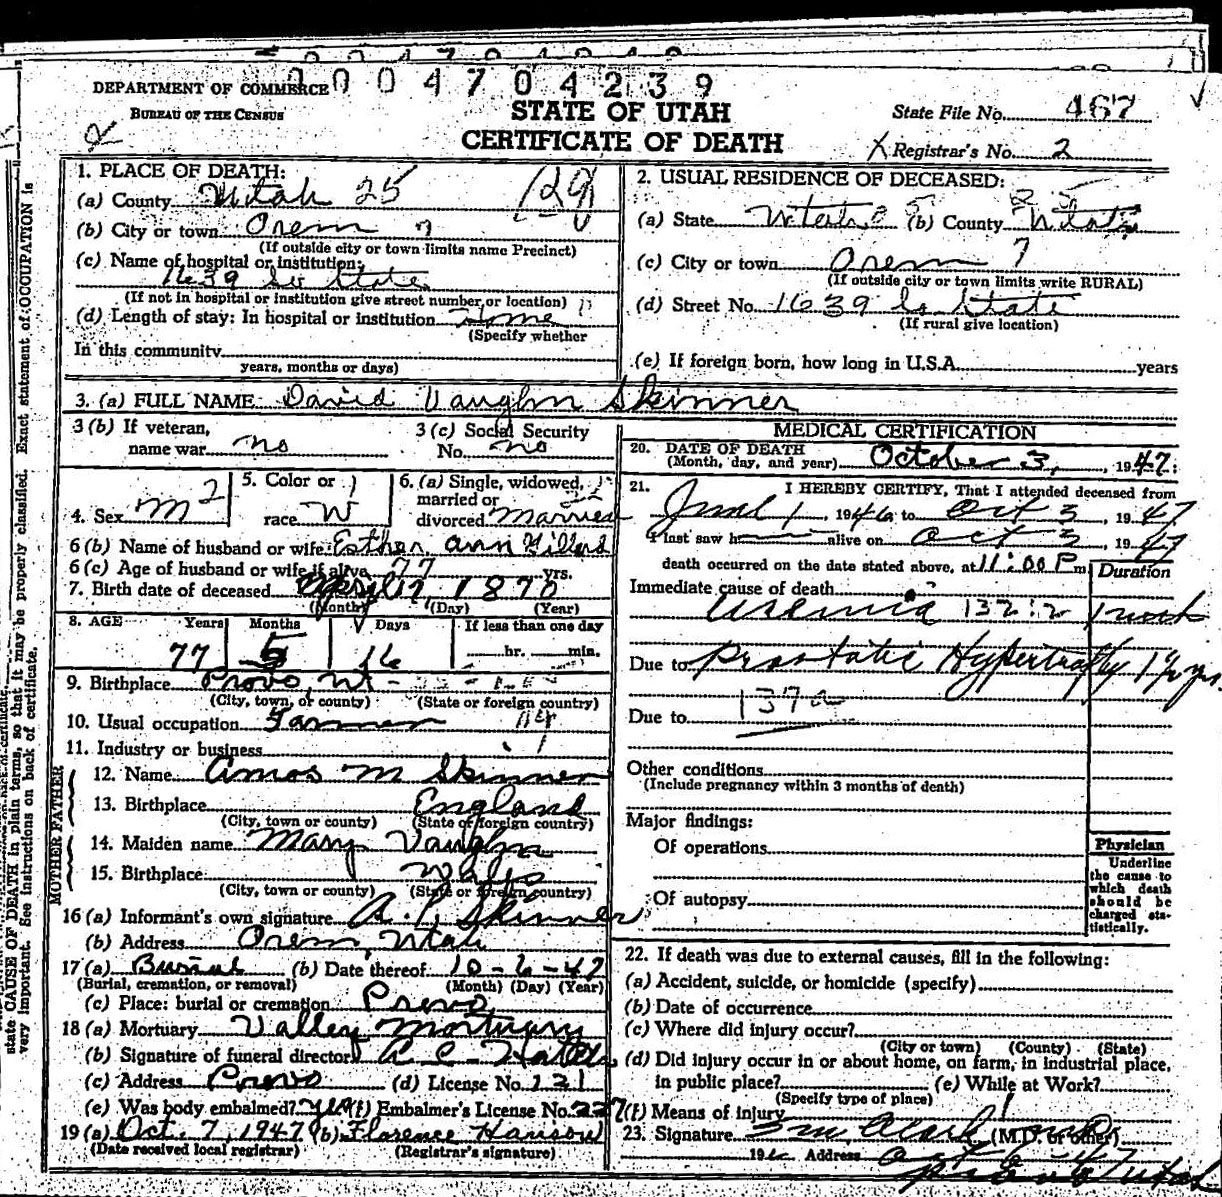 0004704239
DEPARTMENT OF COMMERCE
BUREAU OF THE CENSUS
STATE OF UTAH
CERTIFICATE OF DEATH
State File No. 467
Registrar's No. 2
1. PLACE OF DEATH:
(a) County Utah 25
(b) City or town Orem 7
(If outside city or town limits name Precinct)
(c) Name of hospital or institution:
1639 So State
(If not in hospital or institution give street number or location)
(d) Length of stay: In hospital or institution Home
(Specify whether
In this community
years, months or days)
2. USUAL RESIDENCE OF DECEASED:
(a) State Utah (b) County Utah
(c) City or town Orem 7
(If outside city or town limits write RURAL)
(d) Street No. 1639 So State
(If rural give location)
(e) If foreign born, how long in U.S.A. years
3. (a) FULL NAME David Vaughn Skinner
3 (b) If veteran, name war no
3 (c) Social Security No. no
4. Sex M 2
5. Color or race W
6. (a) Single, widowed, married or divorced Married
6 (b) Name of husband or wife Esther Ann
6 (c) Age of husband or wife if alive 77 yrs.
7. Birth date of deceased April 17, 1870
(Month) (Day) (Year)
8. AGE Years Months Days If less than one day
77 5 16 hr. min.
9. Birthplace Provo Ut
(City, town, or county) (State or foreign country)
10. Usual occupation Farmer
11. Industry or business
FATHER
12. Name Amos M Skinner
13. Birthplace England
(City, town or county) (State or foreign country)
MOTHER
14. Maiden name Mary Vaughn
15. Birthplace Wales
(City, town or county) (State or foreign country)
16 (a) Informant's own signature A. P. Skinner
(b) Address Orem, Utah
17 (a) Burial (b) Date thereof 10-6-47
(Burial, cremation, or removal) (Month) (Day) (Year)
(c) Place: burial or cremation Provo
18 (a) Mortuary Valley Mortuary
(b) Signature of funeral director
(c) Address Provo (d) License No. 131
(e) Was body embalmed? yes (f) Embalmer's License No. 227
19 (a) Oct. 7, 1947 (b) Florence Hanson
(Date received local registrar) (Registrar's signature)
MEDICAL CERTIFICATION
20. DATE OF DEATH
(Month, day, and year) October 3, 1947
21. I HEREBY CERTIFY, That I attended deceased from
June 1, 1946 to Oct 3, 1947
I last saw h alive on Oct 3, 1947
death occurred on the date stated above, at 11:00 P m
Duration
Immediate cause of death
Uremia 132:2 1 week
Due to Prostatic Hypertrofy
Due to 137a
Other conditions
(Include pregnancy within 3 months of death)
Major findings:
Of operations
Of autopsy
Physician
Underline
the cause to
which death
should be
charged sta-
tistically.
22. If death was due to external causes, fill in the following:
(a) Accident, suicide, or homicide (specify)
(b) Date of occurrence
(c) Where did injury occur?
(City or town) (County) (State)
(d) Did injury occur in or about home, on farm, in industrial place,
in public place? (e) While at Work?
(Specify type of place)
(f) Means of injury
23. Signature (M.D. or other)
Address Oct 6 47
Provo Utah
Exact statement of OCCUPATION is
state CAUSE OF DEATH in plain terms, so that it may be properly classified.
very important. See instructions on back of certificate.